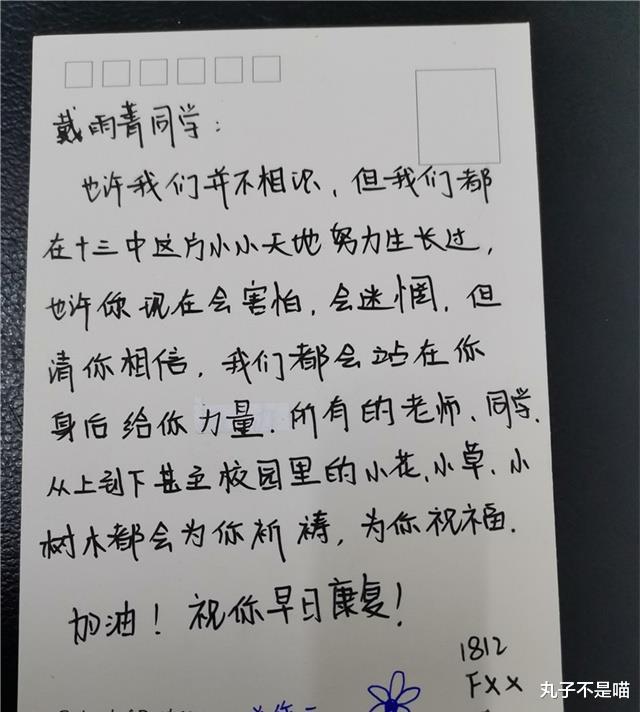 戴雨菁同学：
也许我们并不相识，但我们都
在十三中这片小小天地努力生长过，
也许你现在会害怕，会迷惘，但
请你相信，我们都会站在你
身后给你力量．所有的老师、同学、
从上到下甚至校园里的小花、小草、小
树木都会为你祈祷，为你祝福．
加油！祝你早日康复！
1812
FXX
丸子不是喵